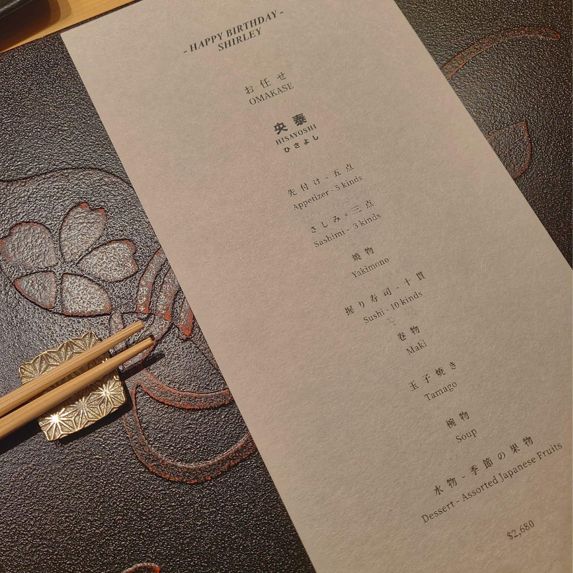 - HAPPY BIRTHDAY -
SHIRLEY
お任せ
OMAKASE
央泰
HISAYOSHI
ひさよし
先付け - 五点
Appetizer - 5 kinds
さしみ - 三点
Sashimi - 3 kinds
焼物
Yakimono
握り寿司 - 十貫
Sushi - 10 kinds
巻物
Maki
玉子焼き
Tamago
椀物
Soup
水物 - 季節の果物
Dessert - Assorted Japanese Fruits
$2,680